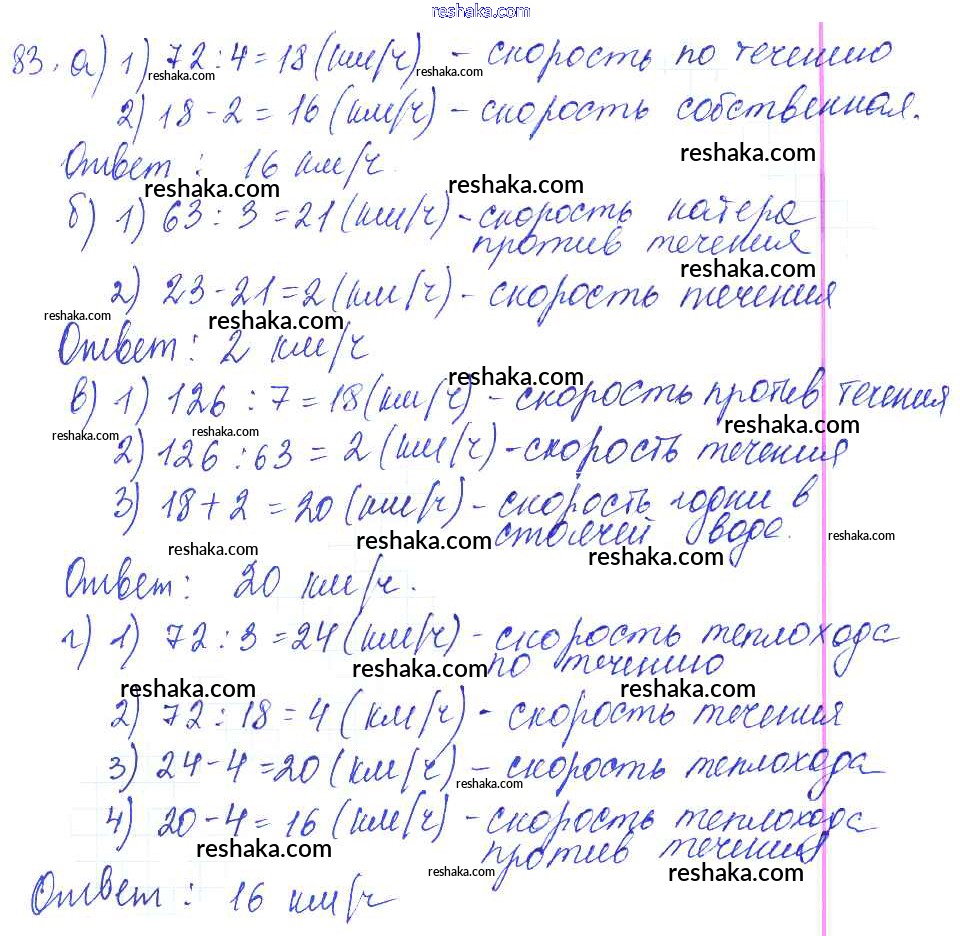 reshaka.com
83. а) 1) 72 : 4 = 18 (км/ч) - скорость по течению
reshaka.com reshaka.com
2) 18 - 2 = 16 (км/ч) - скорость собственная.
Ответ : 16 км/ч.
reshaka.com
reshaka.com reshaka.com
б) 1) 63 : 3 = 21 (км/ч) - скорость катера
против течения
reshaka.com
2) 23 - 21 = 2 (км/ч) - скорость течения
reshaka.com reshaka.com
Ответ : 2 км/ч
reshaka.com
в) 1) 126 : 7 = 18 (км/ч) - скорость против течения
reshaka.com reshaka.com reshaka.com
2) 126 : 63 = 2 (км/ч) - скорость течения
3) 18 + 2 = 20 (км/ч) - скорость лодки в
стоячей воде.
reshaka.com reshaka.com reshaka.com reshaka.com
Ответ : 20 км/ч.
г) 1) 72 : 3 = 24 (км/ч) - скорость теплохода
по течению
reshaka.com
reshaka.com reshaka.com
2) 72 : 18 = 4 (км/ч) - скорость течения
3) 24 - 4 = 20 (км/ч) - скорость теплохода
reshaka.com
4) 20 - 4 = 16 (км/ч) - скорость теплохода
против течения
reshaka.com
reshaka.com reshaka.com
Ответ : 16 км/ч